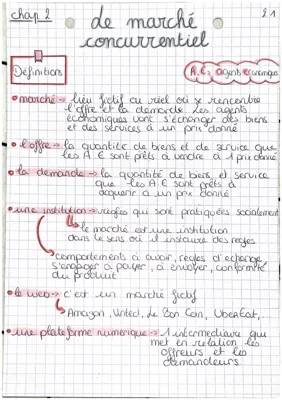 chap 2
2.1
le marché
concurrentiel
Définitions
A.E: agents économiques
marché → lieu fictif ou réel où se rencontre
l'offre et la demande. les agents
économiques vont s'échanger des biens
et des services à un prix donné
l'offre → la quantité de biens et de service que
les A.E sont prêts à vendre à 1 prix donné
la demande → la quantité de biens et service
que les A.E sont prêts à
acquérir à un prix donné
une institution → règles qui sont pratiquées socialement
le marché est une institution
dans le sens où il instaure des règles
comportements à avoir, règles d'échange
s'engager à payer, à envoyer, conformité
du produit
le web → c'est un marché fictif
Amazon, Vinted, Le Bon Coin, UberEat,..
une plateforme numérique → 1 intermédiaire qui
met en relation les
offreurs et les
demandeurs